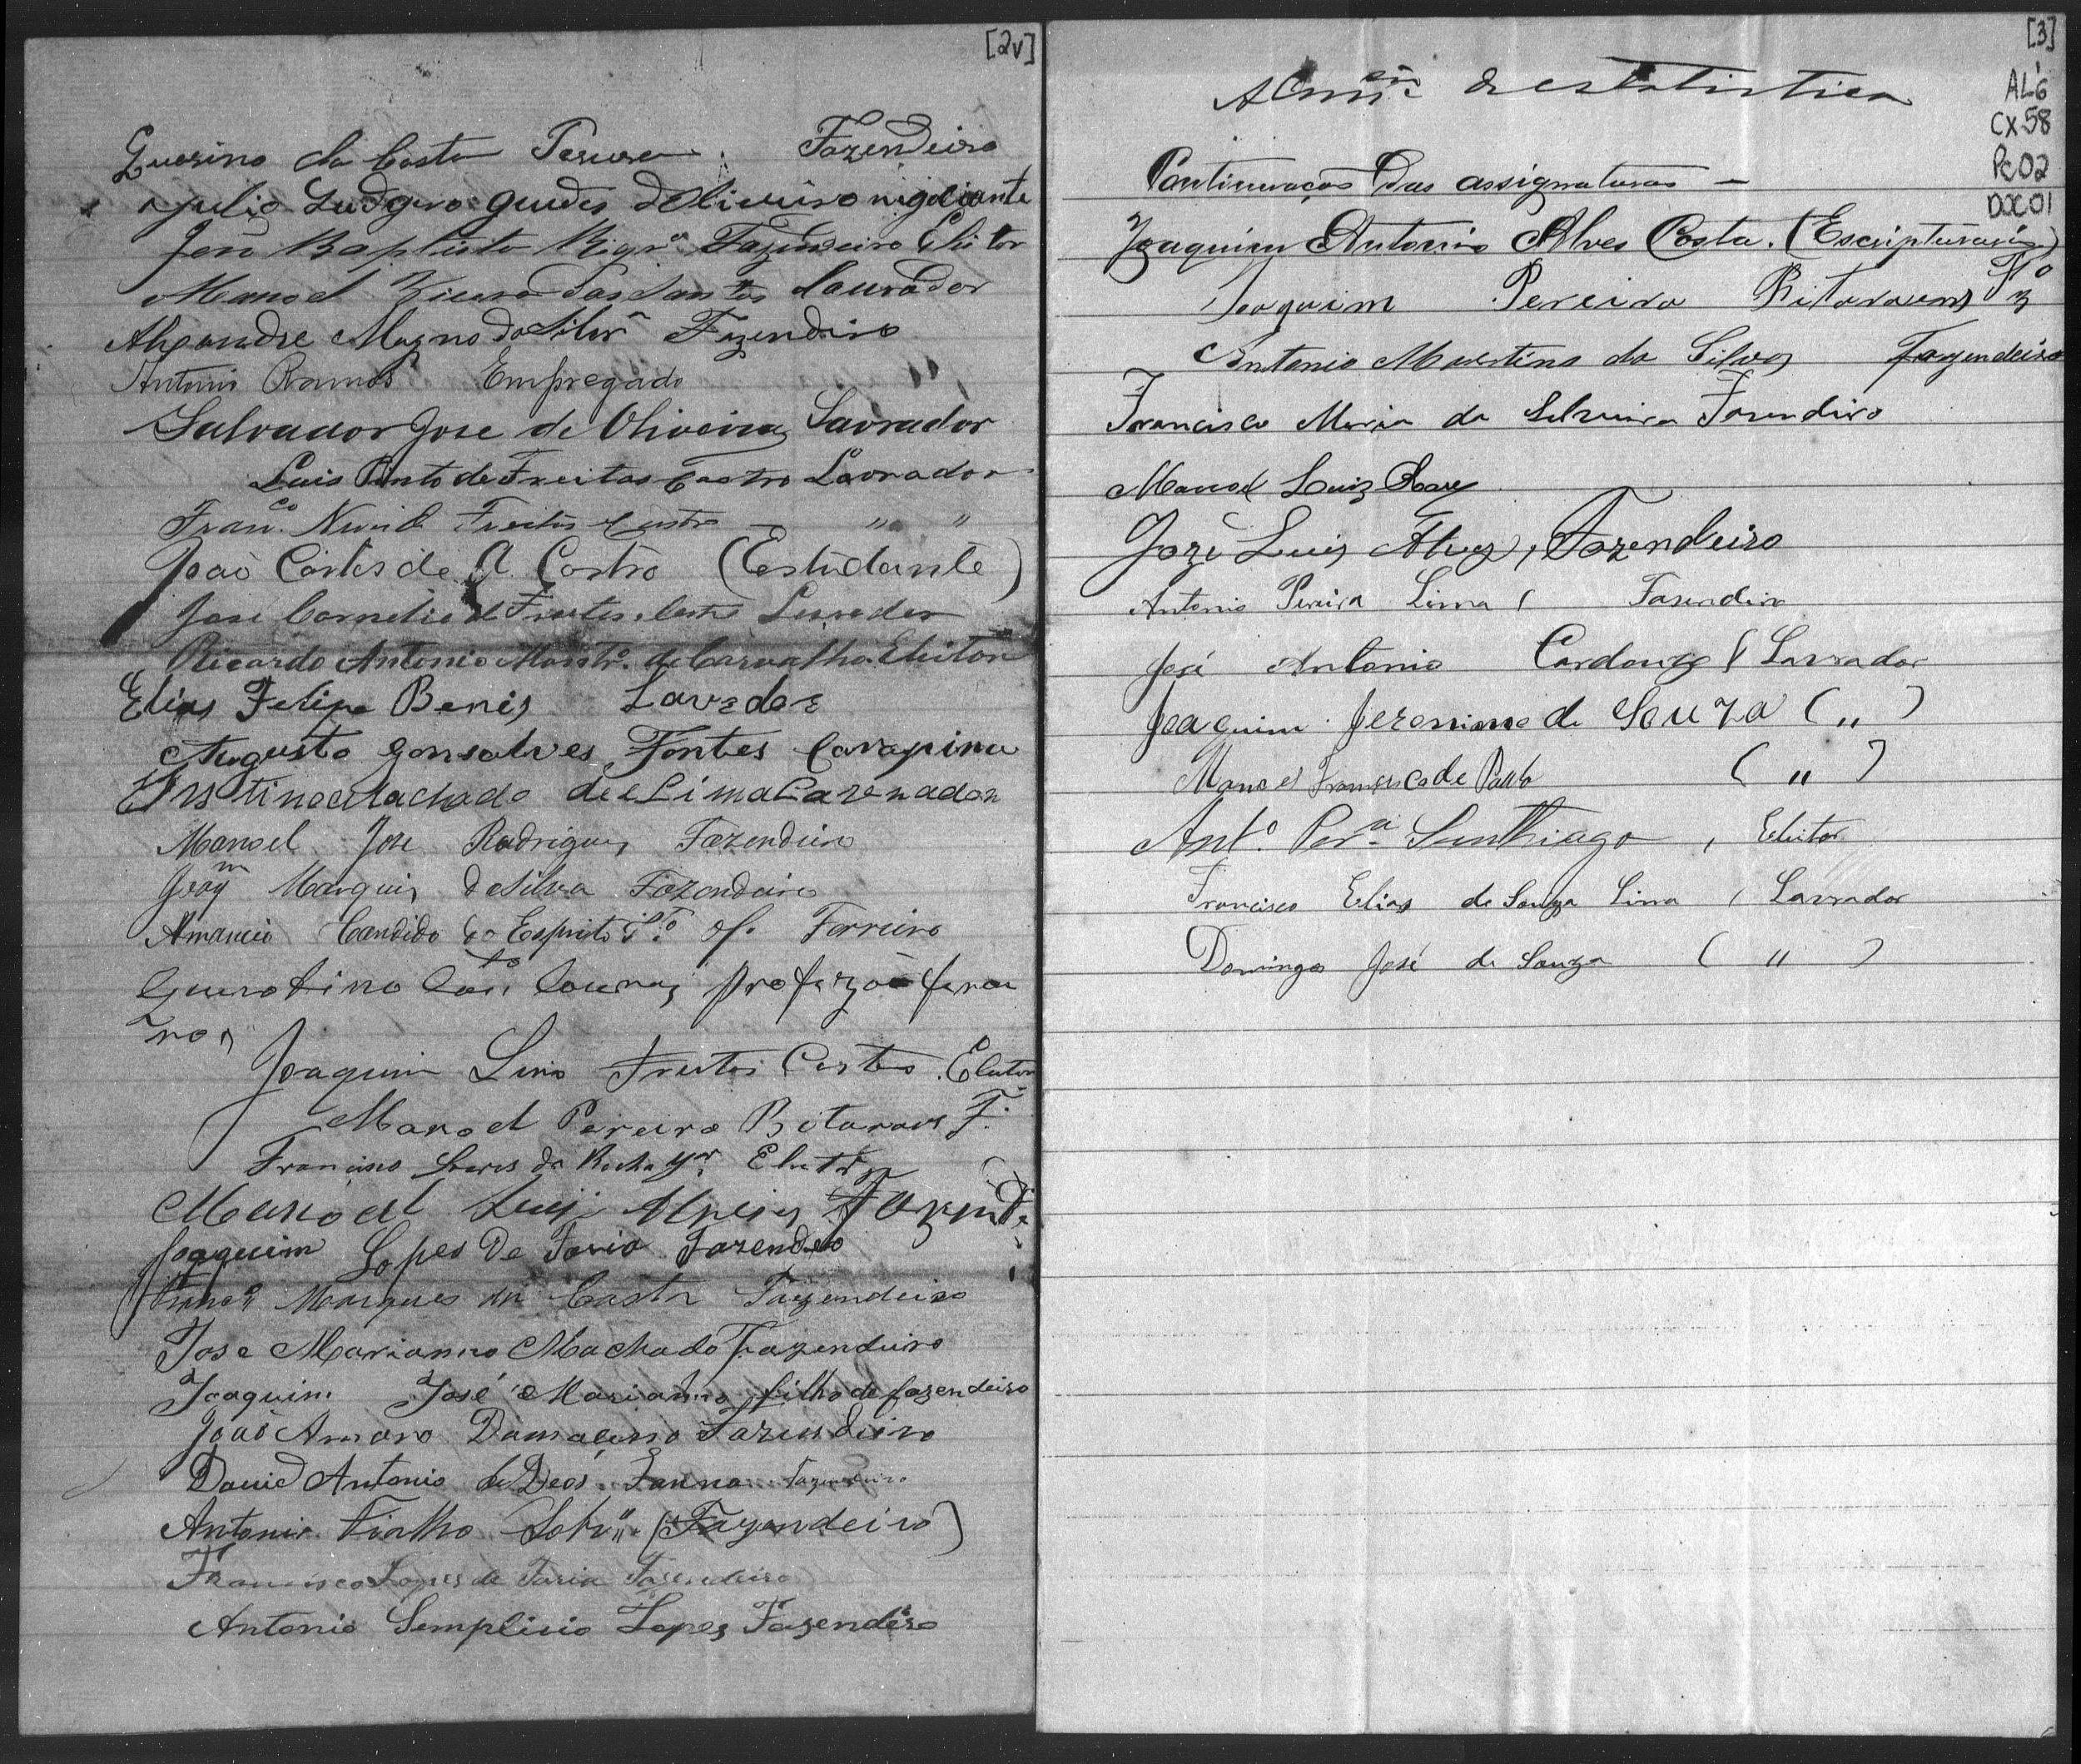 [2v]
Querino da Costa Pereira. Fazendeiro
Julio Ludgero Guedes d'Oliveira nigociante
João Baptista Fazendeiro Eleitor
Manoel Vieira dos Santos Laurador
Alexandre Magno da Silvª Fazendeiro
Antonio Ramos Empregado
Salvador Jose de Oliveira Lavrador
Luis Pinto de Freitas Castro Lavrador
Franco. Freitas Castro " "
João Cortes de A. Castro (Estudante)
José Cornelio de Freitas Castro Lavrador
Ricardo Antonio Montrº. de Carvalho. Eleitor
Elias Felipe Benis Lavrador
Augusto Gonsalves Fontes Carapina
Machado de Lima
Manoel Jose Rodrigues Fazendeiro
Joaqm Marques da Silva Fazendeiro
Amancio Candido do Espirito Sto. of. Ferreiro
profezão ferei
ro
Joaquim Lino Freitas Castro. Eleitor
Manoel Pereira Bitaraens F.
Francisco Soares da Rocha Jor. Eleitor
Manoel Luis Fazende
Joaquim Lopes De Faria Fazendero
Marques da Costa Fazendeiro
Jose Marianno Machado Fazendeiro
Joaquim José Marianno, filho de fazendeiro
João Amaro Damaceno Fazendeiro
David Antonio de Deos. Fazendeiro
Antonio Fialho Sobrº. (Fazendeiro)
Francisco Lopes de Faria Fazendeiro
Antonio Semplicio Lopes Fazendero
[3]
AL6
CX58
Pc02
DOC01
A Comm.ão de estatistica
Continuação das assignaturas –
Joaquim Antonio Alves Costa. (Escripturario)
Joaquim Pereira Bitaraens Fº
Antonio Martins da Silva Fazendeiro
Francisco Maria da Silveira Fazendeiro
Manoel Luiz
José Luis Alves, Fazendeiro
Antonio Pereira Lima ( Fasendeiro
José Antonio Cardouzo ( Lavrador
Joaquim Jeronimo de Souza ( " )
Manoel Francisco de Paulo ( " )
Antº. Perª. Santhiago, Eleitor
Francisco Elias de Souza Lima ( Lavrador
Domingos José de Souza ( " )